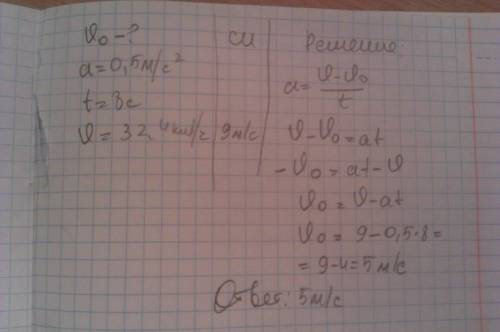 υ₀ - ?
a = 0,5 м/с²
t = 8с
υ = 32,4 км/г
СИ
9 м/с
Решение
a = υ-υ₀/t
υ-υ₀ = at
-υ₀ = at-υ
υ₀ = υ-at
υ₀ = 9-0,5·8=
= 9-4=5м/с
Ответ: 5м/с